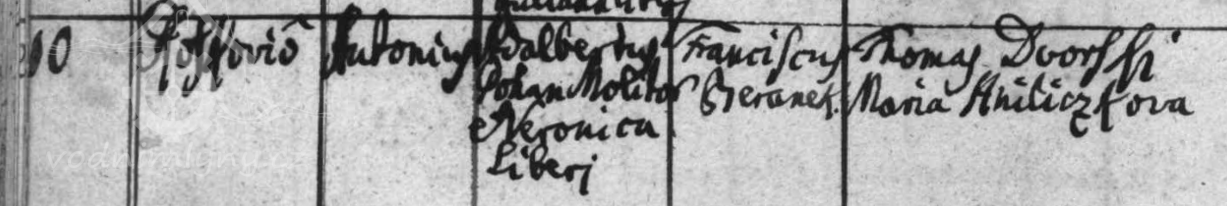 10 Antonius Adalbertus Franciscus Thomas Dvorski
Johan Molitor Beranek. Maria Kniliczkova
et Veronica
Liberi